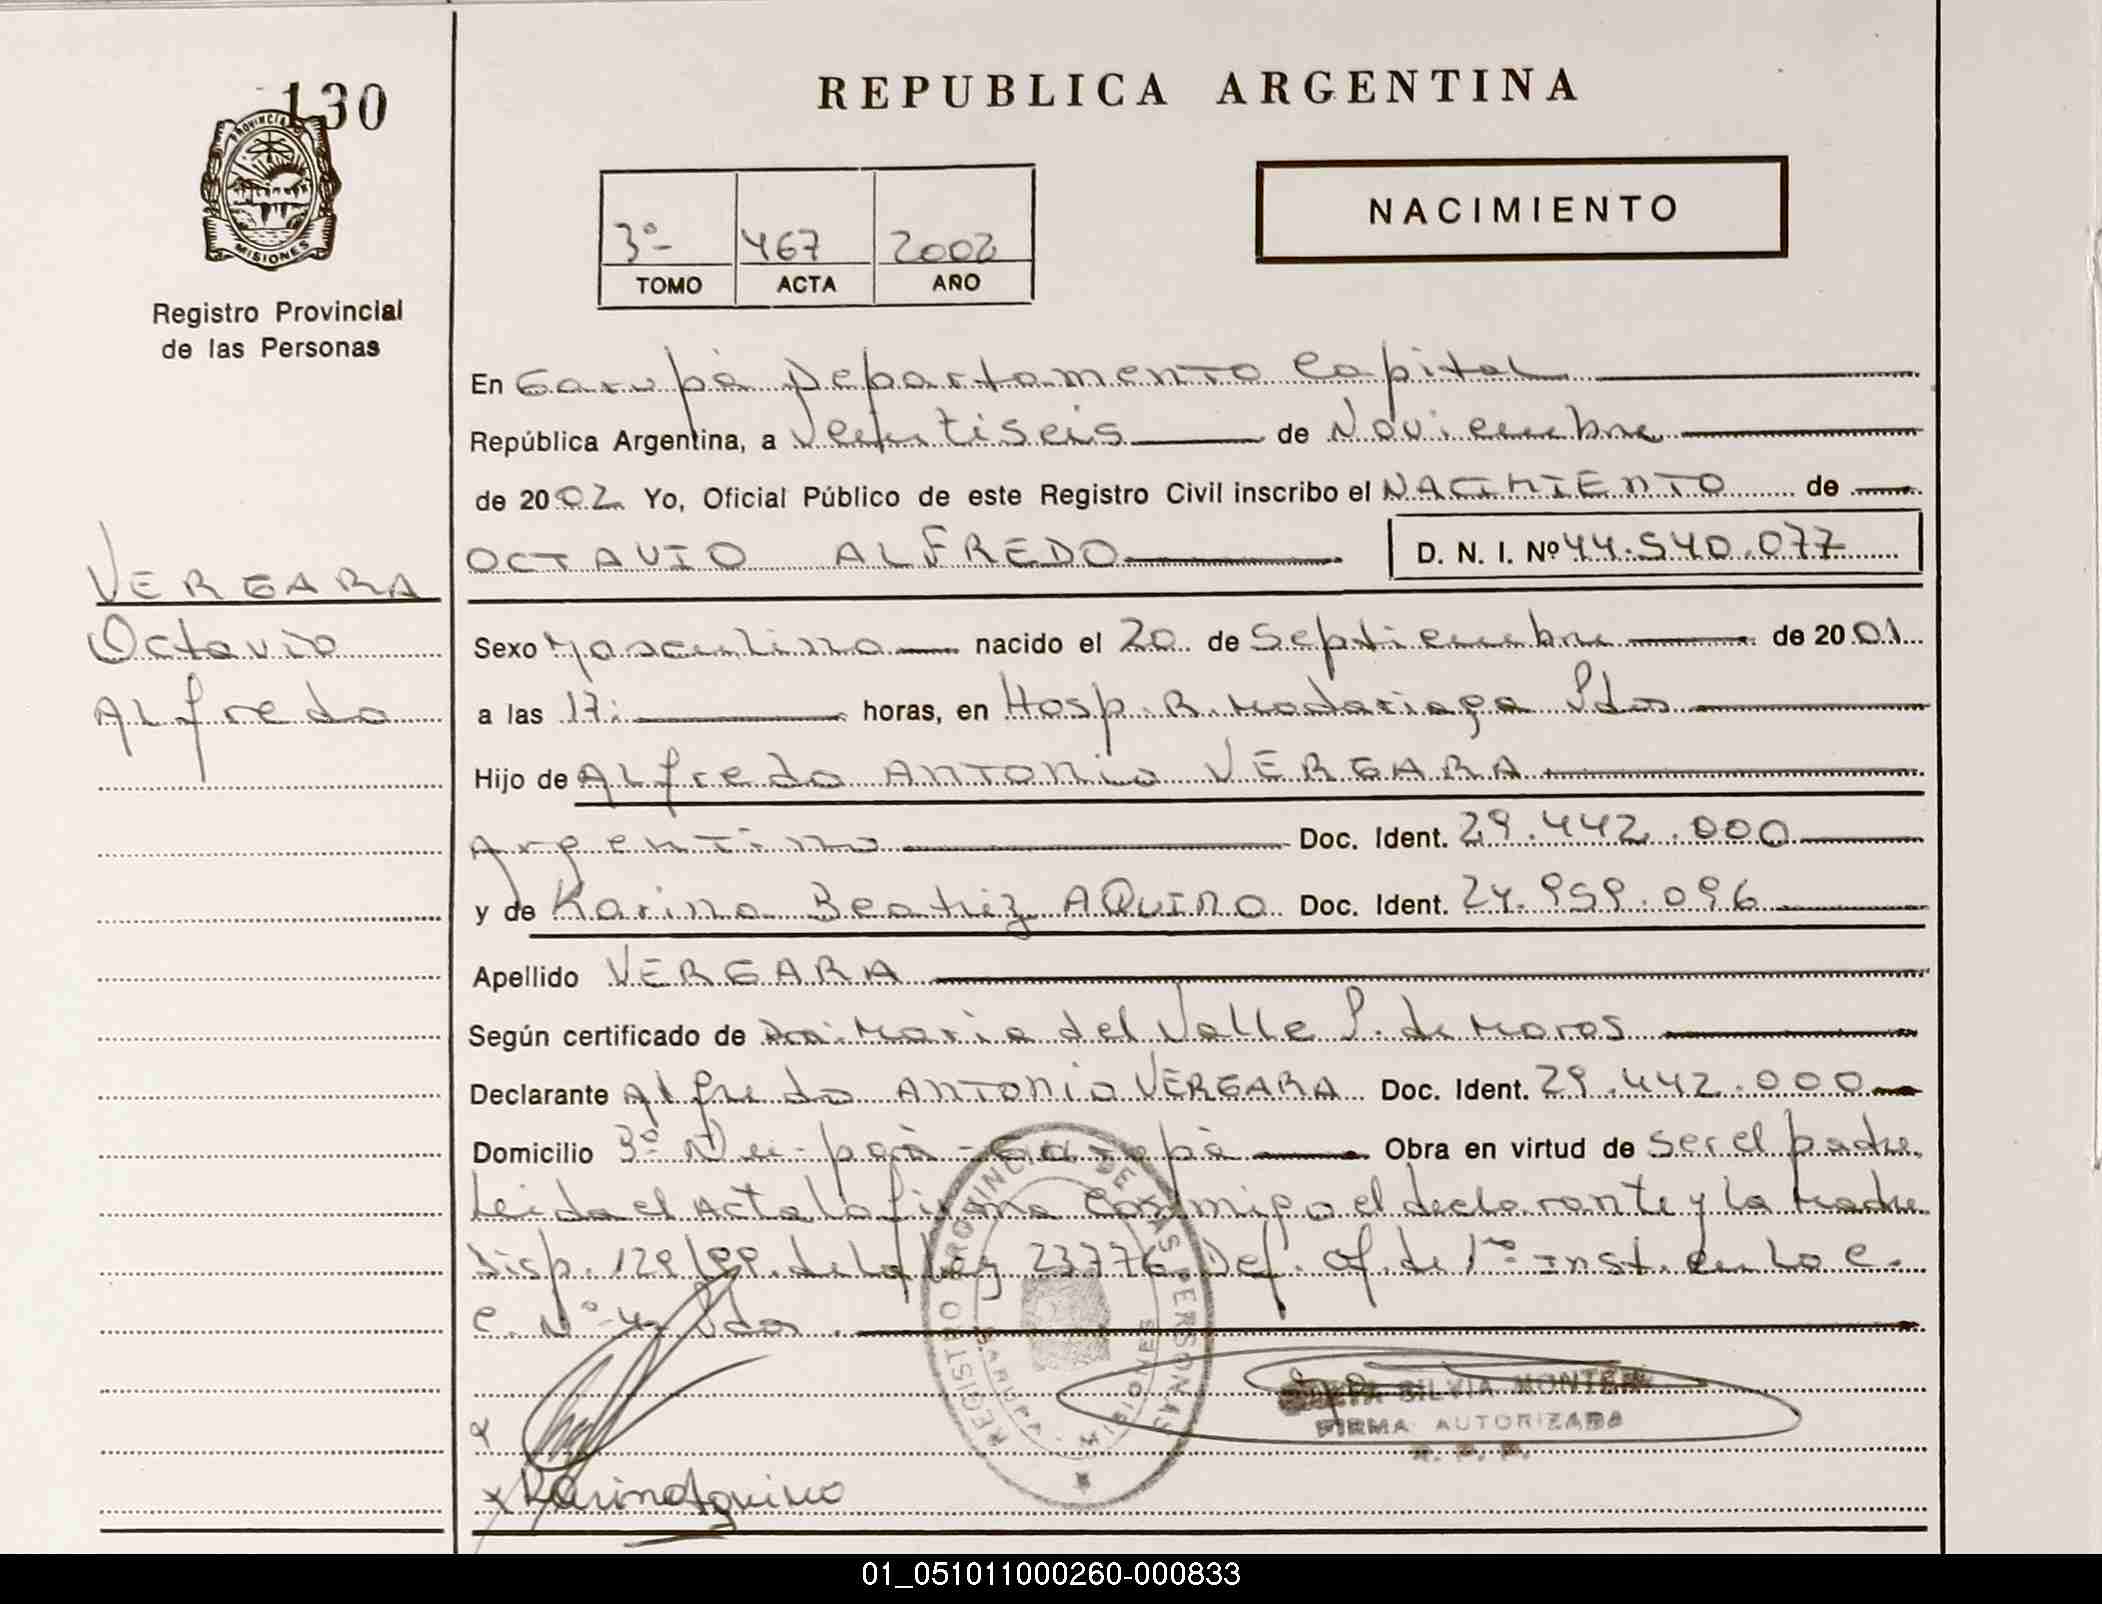 130
PROVINCIA DE
MISIONES
Registro Provincial
de las Personas
VERGARA
Octavio
Alfredo
REPUBLICA ARGENTINA
3º- 467 2002
TOMO ACTA AÑO
NACIMIENTO
En Garupá Departamento Capital
República Argentina, a Veintiseis de Noviembre
de 2002 Yo, Oficial Público de este Registro Civil inscribo el NACIMIENTO de
OCTAVIO ALFREDO D. N. I. Nº 44.540.077
Sexo Masculino nacido el 20 de Septiembre de 2001
a las 17: horas, en Hosp. R. Madariaga Pdas
Hijo de Alfredo ANTONIO VERGARA
Argentino Doc. Ident. 29.442.000
y de Karina Beatriz AQUINO Doc. Ident. 24.959.096
Apellido VERGARA
Según certificado de Dra. Maria del Valle P. de
Declarante Alfredo ANTONIO VERGARA Doc. Ident. 29.442.000
Domicilio 3º Garupá Obra en virtud de ser el padre
Leida el Acta la firma conmigo el declarante y la Madre
Disp. 129/99 de la ley 23776 Def. of. de 1ra Inst. en lo C.
C. Nº 4 Pdas
REGISTRO PROVINCIAL DE LAS PERSONAS
MISIONES
SILVIA
FIRMA AUTORIZADA
x Karina Aquino
01_051011000260-000833